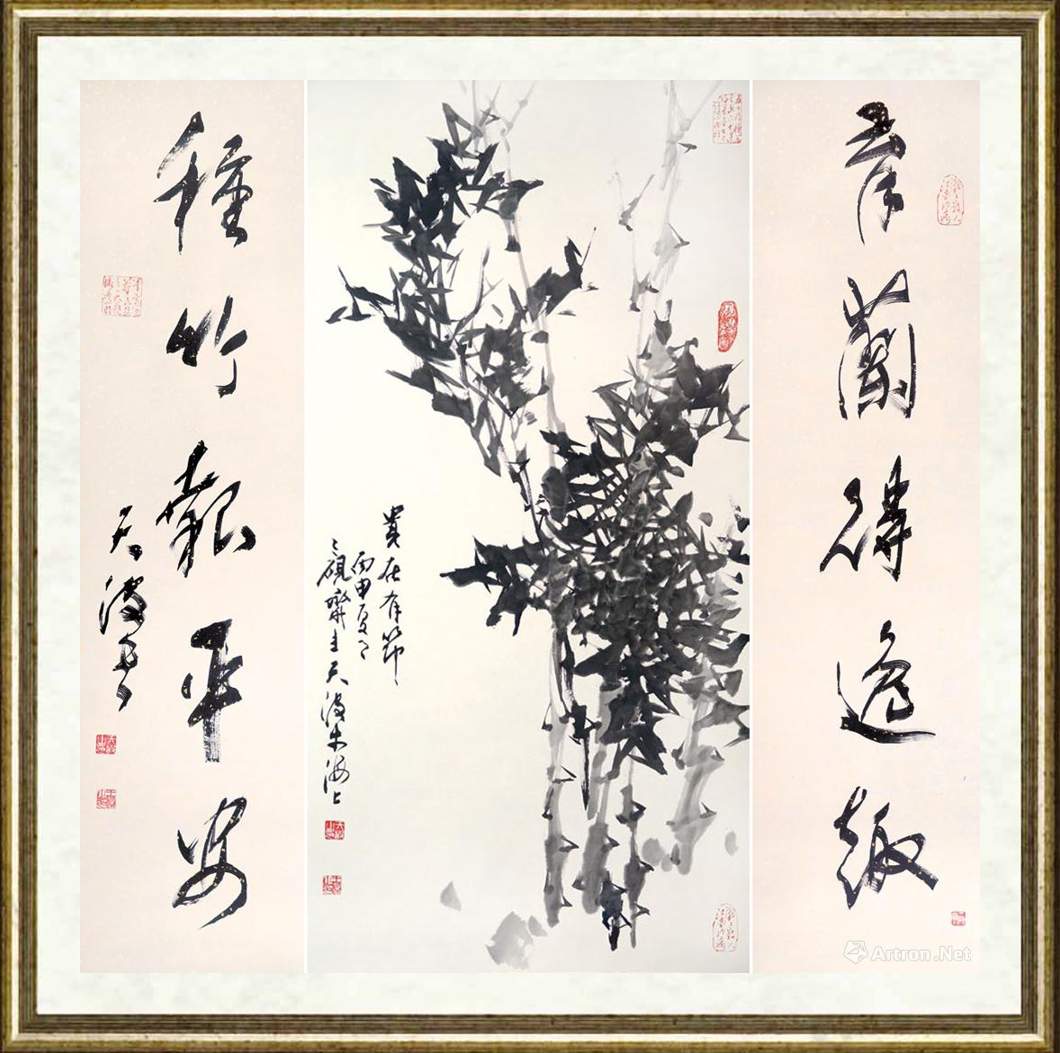 育蘭得逸趣
種竹報平安
天波書
貴在有節
丙申夏月
硯齋主天波於海上
Artron.Net